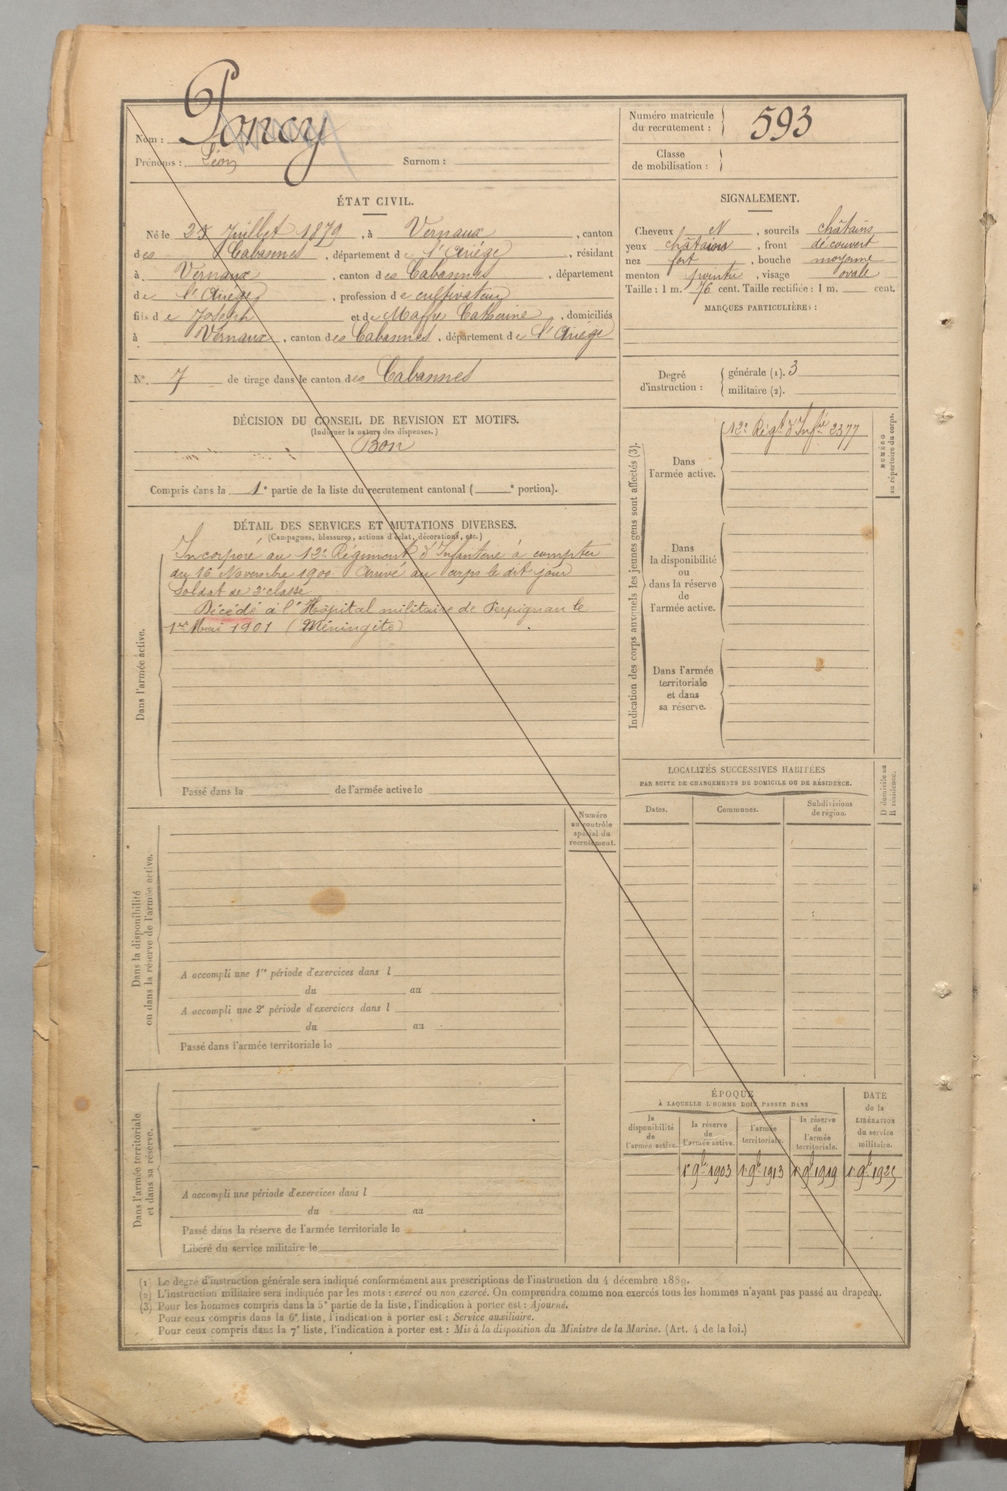 Nom : Poncy
Prénoms : Léon Surnom :
Numéro matricule
du recrutement : 593
Classe
de mobilisation :
ÉTAT CIVIL.
Né le Juillet 1879, à Vernaux, canton
des Cabannes, département de l'Ariège, résidant
à Vernaux, canton des Cabannes, département
de l'Ariège, profession de cultivateur
fils de Joseph et de Maffre Catherine, domiciliés
à Vernaux, canton des Cabannes, département de l'Ariège
N°. 7 de tirage dans le canton des Cabannes
SIGNALEMENT.
Cheveux N, sourcils châtains
yeux châtains, front découvert
nez fort, bouche moyenne
menton pointu, visage ovale
Taille : 1 m. 76 cent. Taille rectifiée : 1 m. cent.
MARQUES PARTICULIÈRES :
Degré
d'instruction :
générale (1). 3
militaire (2).
DÉCISION DU CONSEIL DE REVISION ET MOTIFS.
(Indiquer la nature des dispenses.)
Bon
Compris dans la 1e partie de la liste du recrutement cantonal ( e portion).
DÉTAIL DES SERVICES ET MUTATIONS DIVERSES.
(Campagnes, blessures, actions d'éclat, décorations, etc.)
Dans l'armée active.
Incorporé au 12e Régiment d'Infanterie à compter
du 16 Novembre 1900. Arrivé au corps le dit jour
Soldat de 2e classe
Décédé à l'Hôpital militaire de Perpignan le
1er Mai 1901 (Méningite)
Passé dans la de l'armée active le
Indication des corps auxquels les jeunes gens sont affectés (3).
Dans
l'armée active.
12e Régt d'Infie 2377
NUMÉRO
au répertoire du corps.
Dans
la disponibilité
ou
dans la réserve
de
l'armée active.
Dans l'armée
territoriale
et dans
sa réserve.
LOCALITÉS SUCCESSIVES HABITÉES
PAR SUITE DE CHANGEMENTS DE DOMICILE OU DE RÉSIDENCE.
Dates.
Communes.
Subdivisions
de région.
D domicile ou
R résidence.
Numéro
au contrôle
spécial du
recrutement.
Dans la disponibilité
ou dans la réserve de l'armée active.
A accompli une 1re période d'exercices dans l
du au
A accompli une 2e période d'exercices dans l
du au
Passé dans l'armée territoriale le
Dans l'armée territoriale
et dans sa réserve.
A accompli une période d'exercices dans l
du au
Passé dans la réserve de l'armée territoriale le
Libéré du service militaire le
ÉPOQUE
À LAQUELLE L'HOMME DOIT PASSER DANS
la
disponibilité
de
l'armée active.
la réserve
de
l'armée active.
l'armée
territoriale.
la réserve
de
l'armée
territoriale.
DATE
de la
LIBÉRATION
du service
militaire.
1r 9b 1903 1r 9b 1913 1r 9b 1919 1r 9b 1925
(1) Le degré d'instruction générale sera indiqué conformément aux prescriptions de l'instruction du 4 décembre 1889.
(2) L'instruction militaire sera indiquée par les mots : exercé ou non exercé. On comprendra comme non exercés tous les hommes n'ayant pas passé au drapeau.
(3) Pour les hommes compris dans la 5e partie de la liste, l'indication à porter est : Ajourné.
Pour ceux compris dans la 6e liste, l'indication à porter est : Service auxiliaire.
Pour ceux compris dans la 7e liste, l'indication à porter est : Mis à la disposition du Ministre de la Marine. (Art. 4 de la loi.)